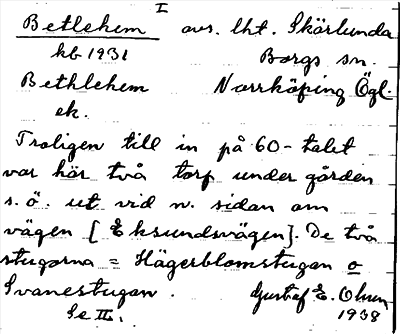 I
Betlehem avs. lht. Skärlunda
kb 1931 Borgs sn.
Bethlehem Norrköping Ögl.
ek.
Troligen till in på 60-talet
var här två torp under gården
s. ö. ut vid n. sidan om
vägen [Eksundsvägen]. De två
stugorna = Hägerblomstugan o
Svanestugan. Gustaf E. Olson
Se II. 1938